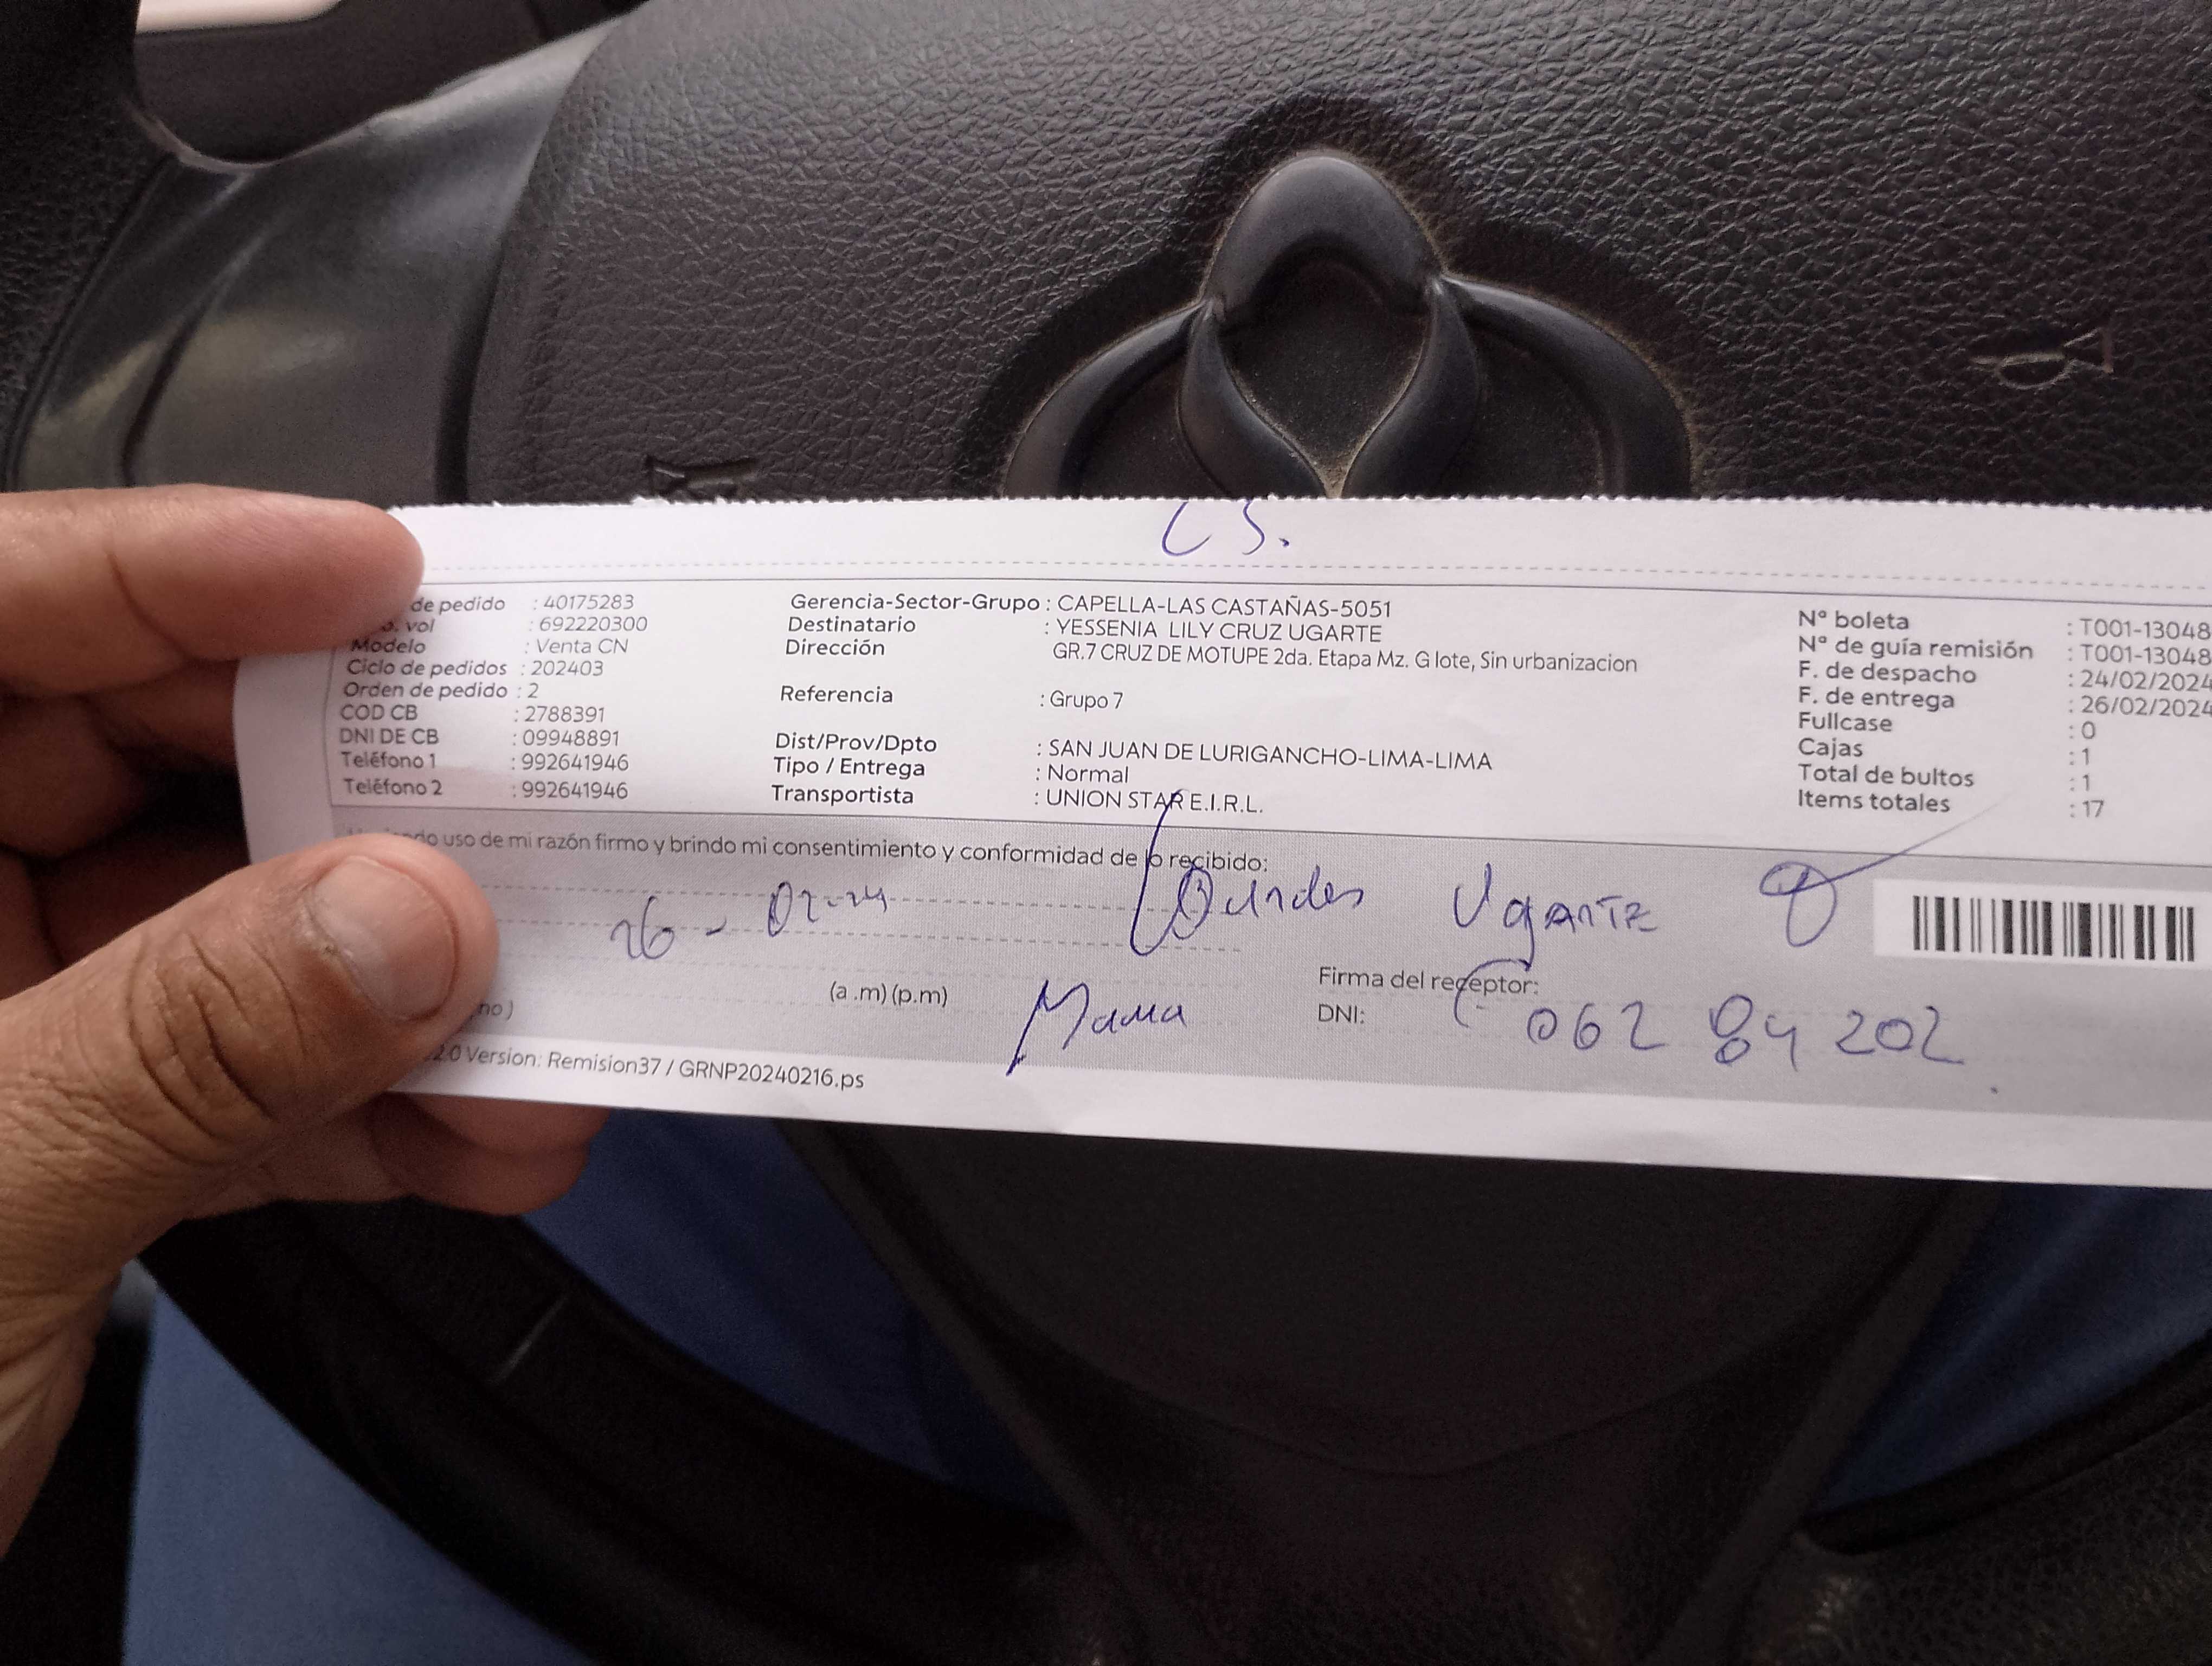 de pedido : 40175283
vol : 692220300
Modelo : Venta CN
Ciclo de pedidos : 202403
Orden de pedido : 2
COD CB : 2788391
DNI DE CB : 09948891
Teléfono 1 : 992641946
Teléfono 2 : 992641946
Gerencia-Sector-Grupo : CAPELLA-LAS CASTAÑAS-5051
Destinatario : YESSENIA LILY CRUZ UGARTE
Dirección GR.7 CRUZ DE MOTUPE 2da. Etapa Mz. G lote, Sin urbanizacion
Referencia : Grupo 7
Dist/Prov/Dpto : SAN JUAN DE LURIGANCHO-LIMA-LIMA
Tipo / Entrega : Normal
Transportista : UNION STAR E.I.R.L.
Nº boleta : T001-13048
Nº de guía remisión : T001-13048
F. de despacho : 24/02/2024
F. de entrega : 26/02/2024
Fullcase : 0
Cajas : 1
Total de bultos : 1
Items totales : 17
uso de mi razón firmo y brindo mi consentimiento y conformidad de lo recibido:
26 - 02-24 Ugarte
(a .m) (p.m) Mama Firma del receptor:
DNI: 062 84 202
no )
2.0 Version: Remision37 / GRNP20240216.ps